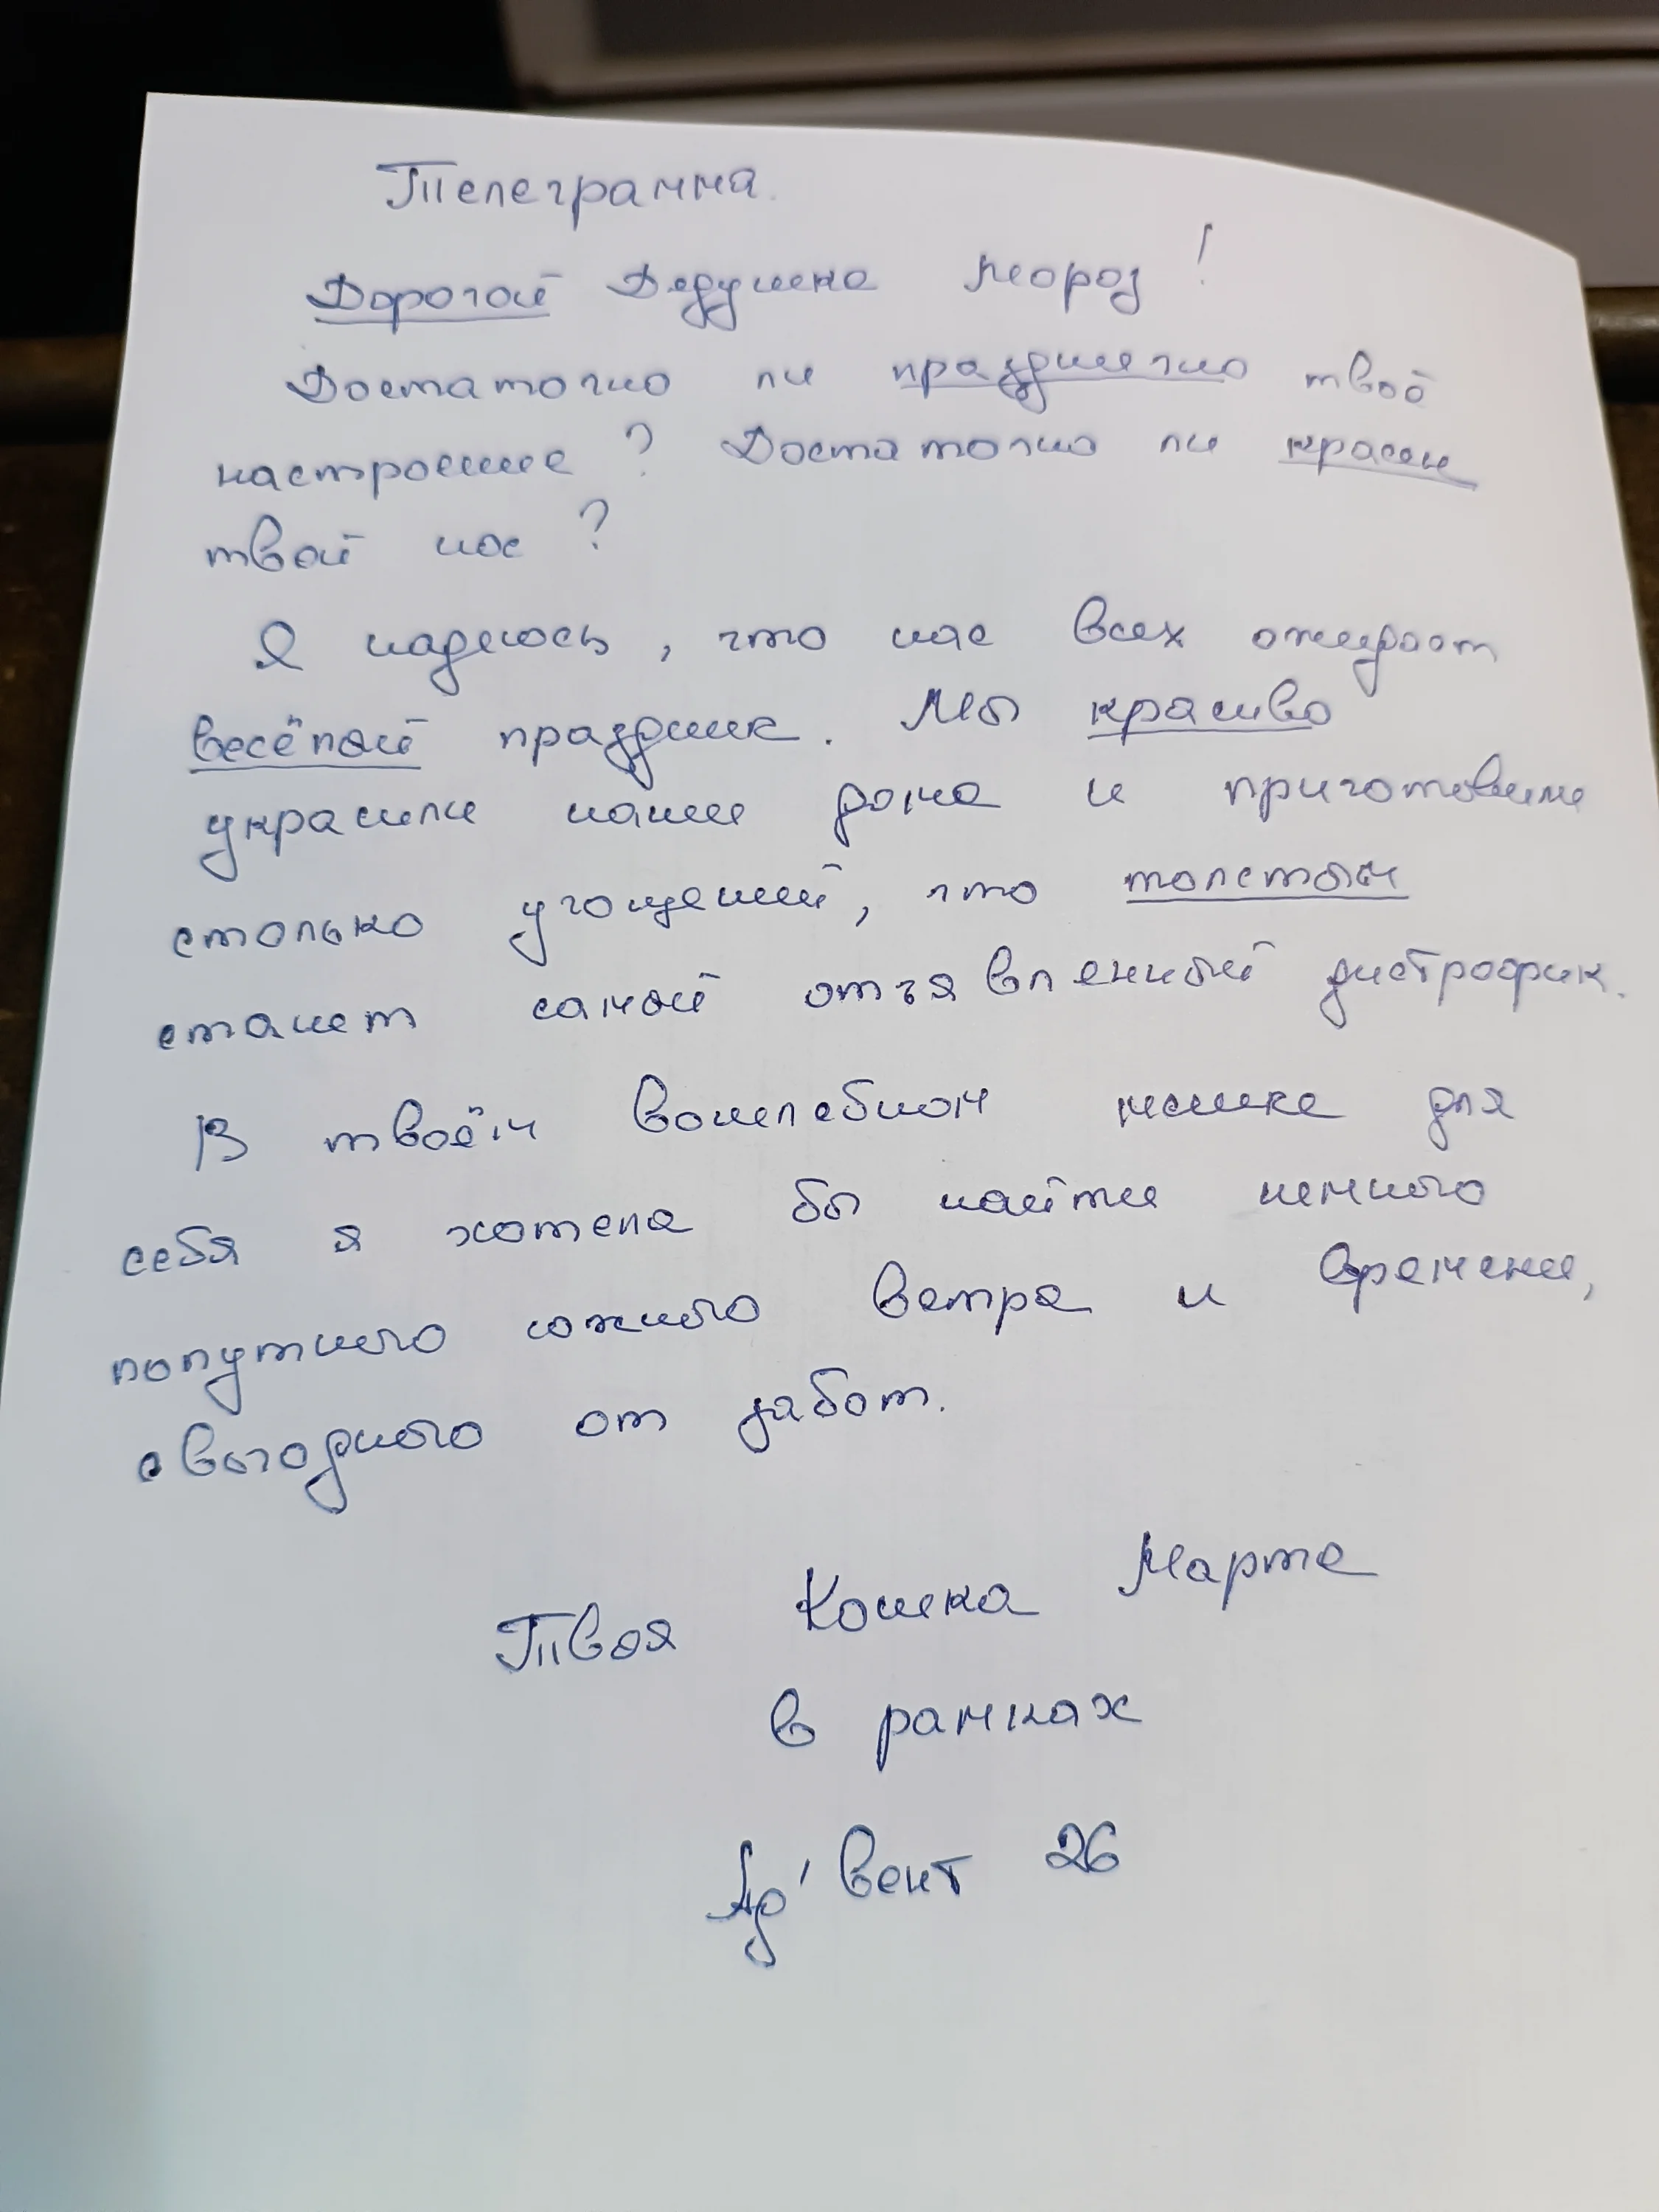 Телеграмма.
Дорогой Дедушка Мороз!
Достаточно ли празднично твоё
настроение? Достаточно ли красен
твой нос?
Я надеюсь, что нас всех ожидает
весёлый праздник. Мы красиво
украсили наши дома и приготовили
столько угощений, что толстым
станет самый отъявленный дистрофик.
В твоём волшебном мешке для
себя я хотела бы найти немного
попутного южного ветра и времени,
свободного от забот.
Твоя Кошка Марта
в рамках
Ад'вент 26